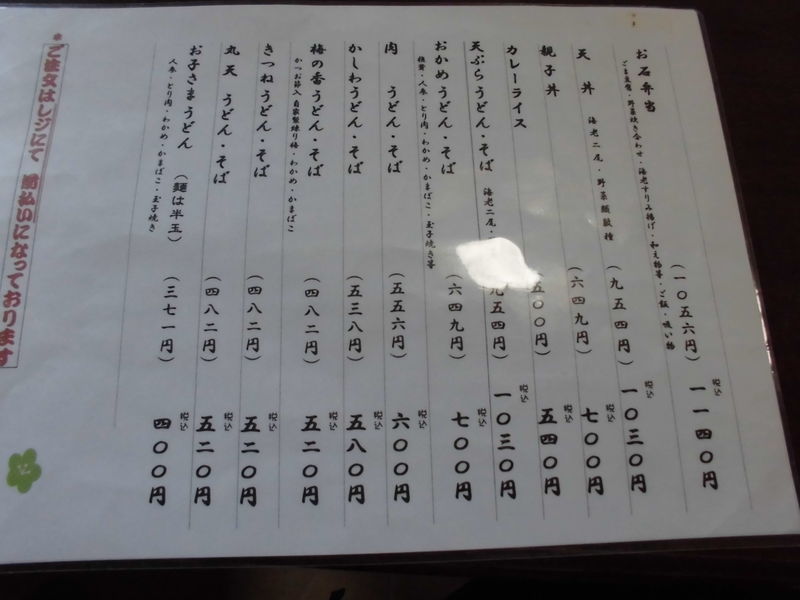 お石弁当 (一〇五六円) 税込 一一四〇円
ごま豆腐・野菜焚き合わせ・海老すりみ揚げ・和え物等・ご飯・吸い物
天丼 海老二尾・野菜類数種 (九五四円) 税込 一〇三〇円
親子丼 (六四九円) 税込 七〇〇円
カレーライス 五〇〇円) 税込 五四〇円
天ぷらうどん・そば 海老二尾・ 九五四円) 税込 一〇三〇円
おかめうどん・そば (六四九円) 税込 七〇〇円
椎茸・人参・とり肉・わかめ・かまぼこ・玉子焼き等
肉 うどん・そば (五五六円) 税込 六〇〇円
かしわうどん・そば (五三八円) 税込 五八〇円
梅の香うどん・そば (四八二円) 税込 五二〇円
かつお節入 自家製練り梅・わかめ・かまぼこ
きつねうどん・そば (四八二円) 税込 五二〇円
丸天 うどん・そば (四八二円) 税込 五二〇円
お子さまうどん (麺は半玉) (三七一円) 税込 四〇〇円
人参・とり肉・わかめ・かまぼこ・玉子焼き
※ご注文はレジにて 前払いになっております